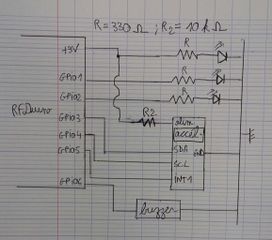 R = 330 Ω ; R2 = 10 kΩ
+3V
R
GPIO1
R
GPIO2
R
RFduino
GPIO3
R2
alim
accel.
GPIO4
SDA
GND
GPIO5
SCL
INT1
GPIO6
buzzer